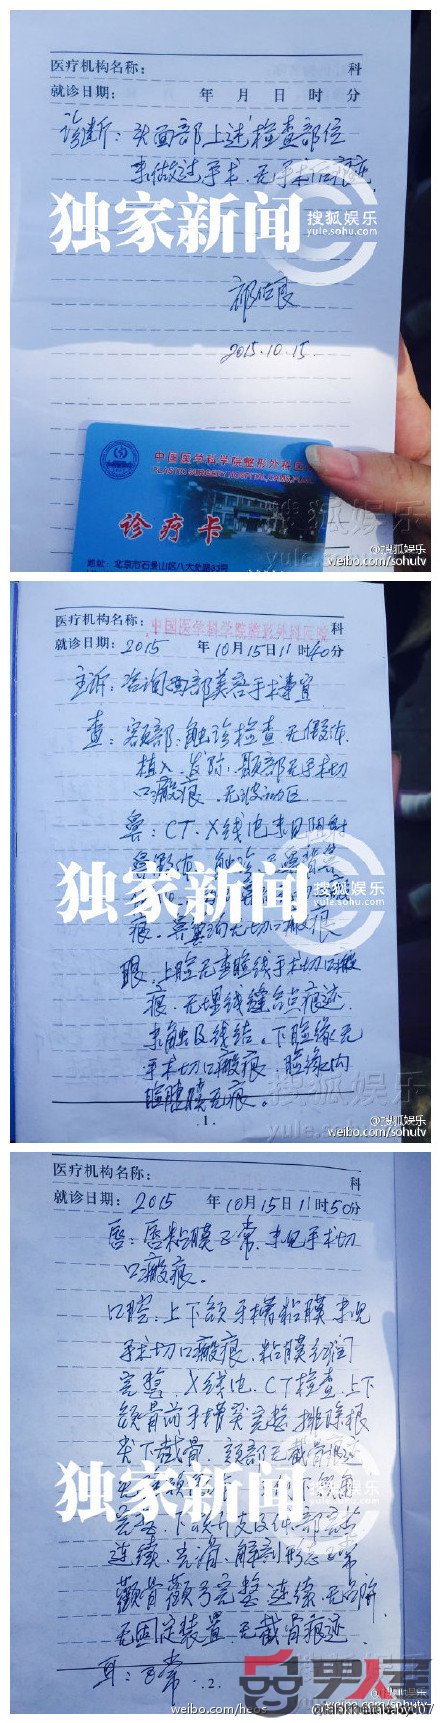 医疗机构名称： 科
就诊日期： 年 月 日 时 分
诊断：头面部上述检查部位
未做过手术.无手术后痕迹
独家新闻
搜狐娱乐
yule.sohu.com
2015.10.15.
中国医学科学院整形外科医
PLASTIC SURGERY HOSPITAL, CAMS, PUMC
诊疗卡
地址：北京市石景山区八大处路33号
搜狐娱乐
yule.sohu.com
@搜狐娱乐
weibo.com/sohutv
医疗机构名称：中国医学科学院整形外科医院 科
就诊日期：2015 年10月15日11时40分
主诉：咨询面部美容手术事宜
查：额部：触诊检查.无假体
植入.发际.颞部无手术切
口瘢痕.无波动区
鼻：CT.X线也未见阻射
独家新闻
搜狐娱乐
yule.sohu.com
痕.鼻翼沟无切口瘢痕
眼.上睑无重睑线手术切口瘢
痕.无埋线缝合点痕迹.
未触及线结。下睑缘无
手术切口瘢痕.睑缘内
睑膜无痕。
1.
搜狐娱乐
yule.sohu.com
@搜狐娱乐
weibo.com/sohutv
医疗机构名称： 科
就诊日期：2015 年10月15日11时50分
唇：唇粘膜正常.未见手术切
口瘢痕。
口腔：上下颌牙槽粘膜未见
手术切口瘢痕.粘膜红润
完整.X线也.CT检查.上下
颌骨前牙槽突完整排除根
尖下截骨.颏部无截骨痕迹
独家新闻
搜狐娱乐
yule.sohu.com
连续.光滑.解剖形态正常
颧骨颧弓完整.连续.无凹陷
无固定装置.无截骨痕迹.
耳：正常
.2.
weibo.com/heqs
男人窝